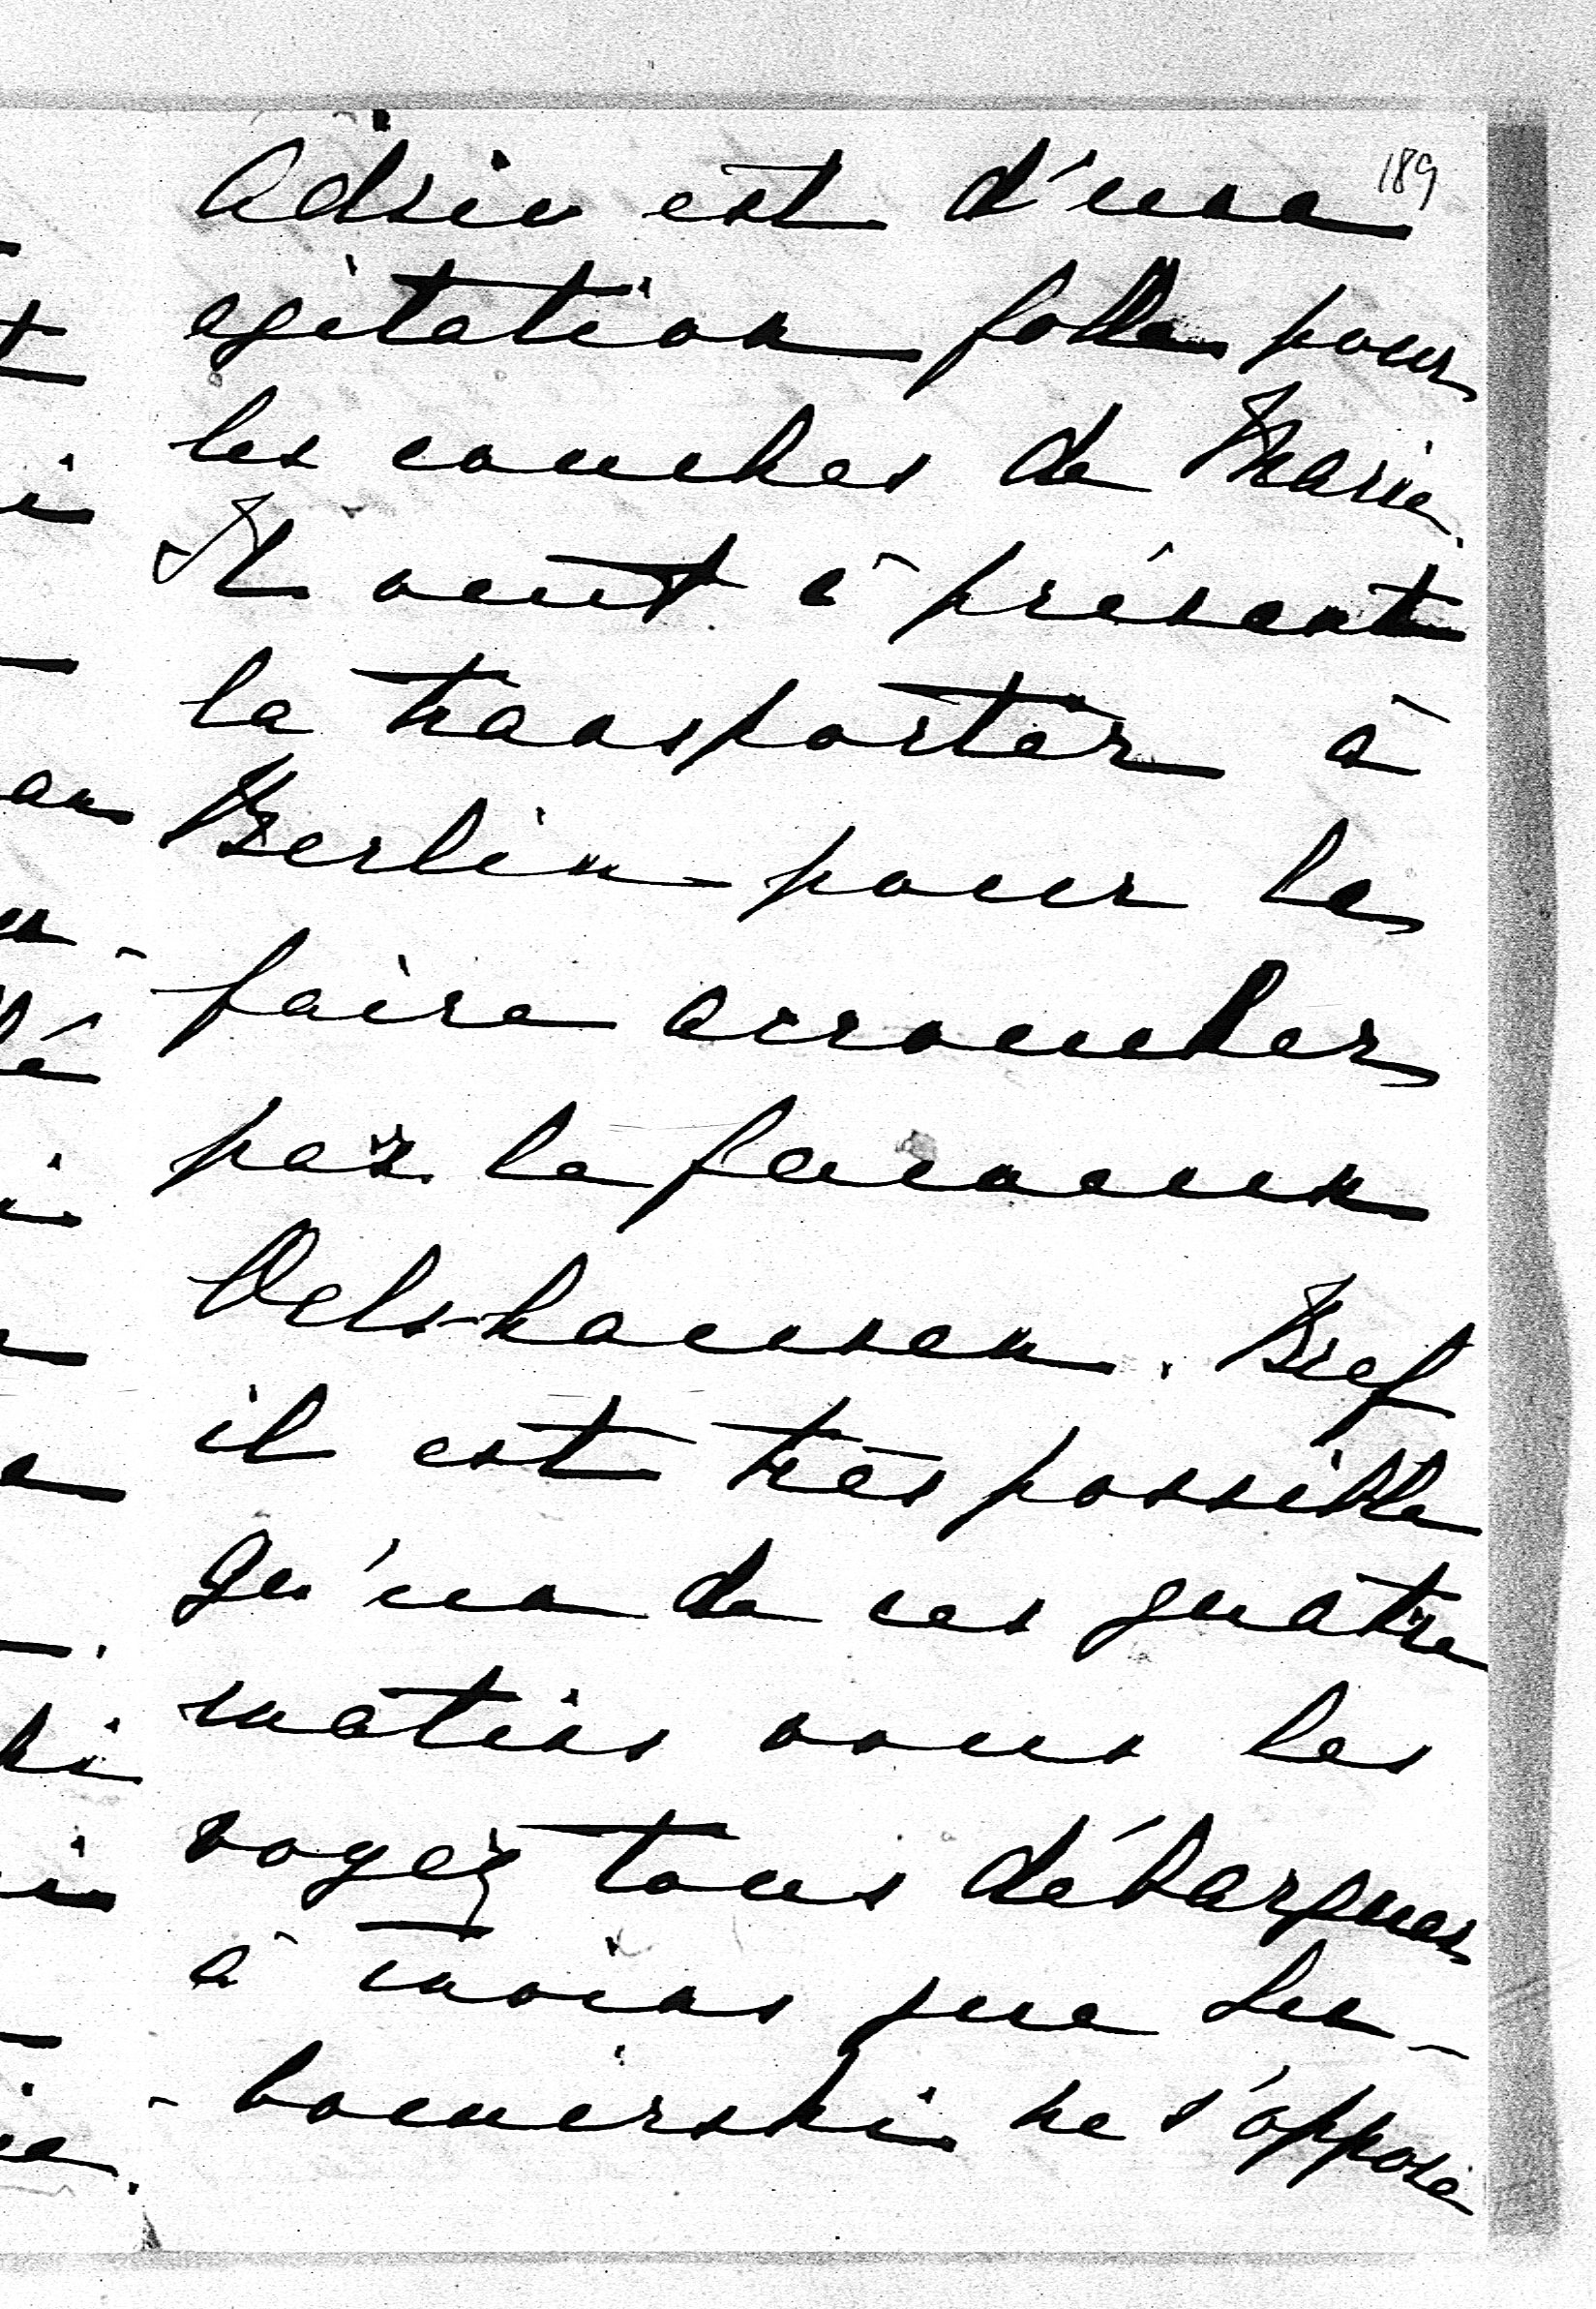 189
Adziu est d'une
agitation folle pour
les couches de Marie.
Il veut à présent
la transporter à
Berlin pour la
faire accoucher
par le fameux
Olshausen. Bref
il est très possible
qu'un de ces quatre
matins vous les
voyez tous débarquer
à moins que Lu-
-bomirski ne s'oppose